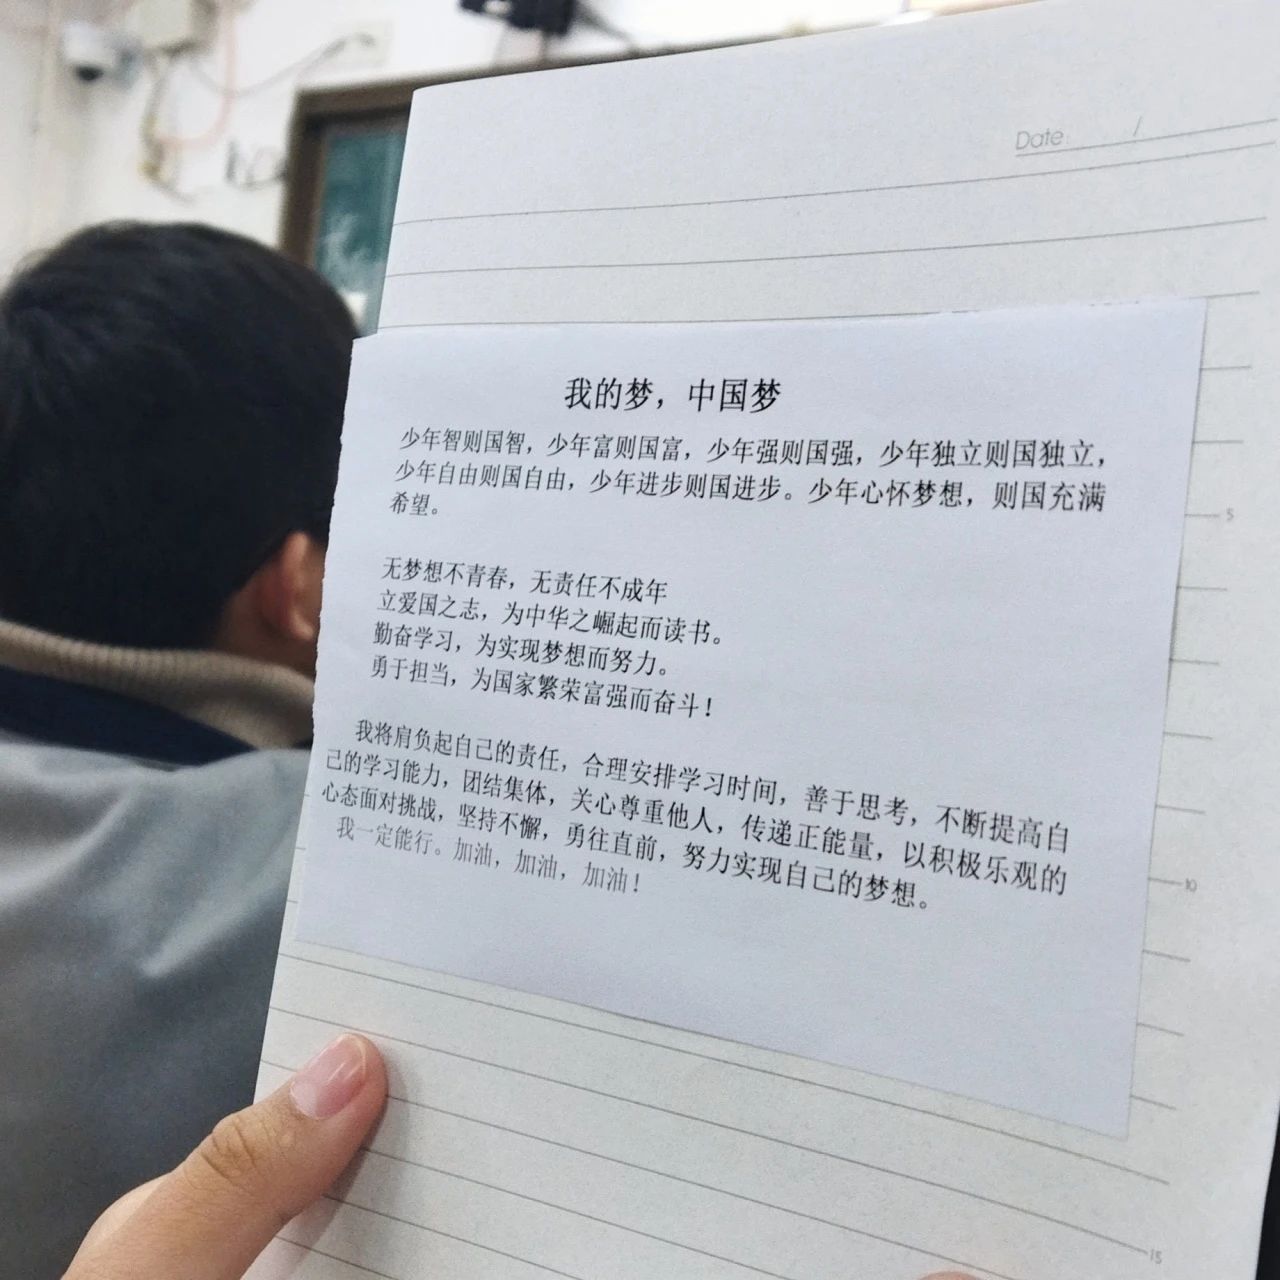 Date: /
我的梦，中国梦
少年智则国智，少年富则国富，少年强则国强，少年独立则国独立，
少年自由则国自由，少年进步则国进步。少年心怀梦想，则国充满
希望。
无梦想不青春，无责任不成年
立爱国之志，为中华之崛起而读书。
勤奋学习，为实现梦想而努力。
勇于担当，为国家繁荣富强而奋斗！
我将肩负起自己的责任，合理安排学习时间，善于思考，不断提高自
己的学习能力，团结集体，关心尊重他人，传递正能量，以积极乐观的
心态面对挑战，坚持不懈，勇往直前，努力实现自己的梦想。
我一定能行。加油，加油，加油！
5
10
15